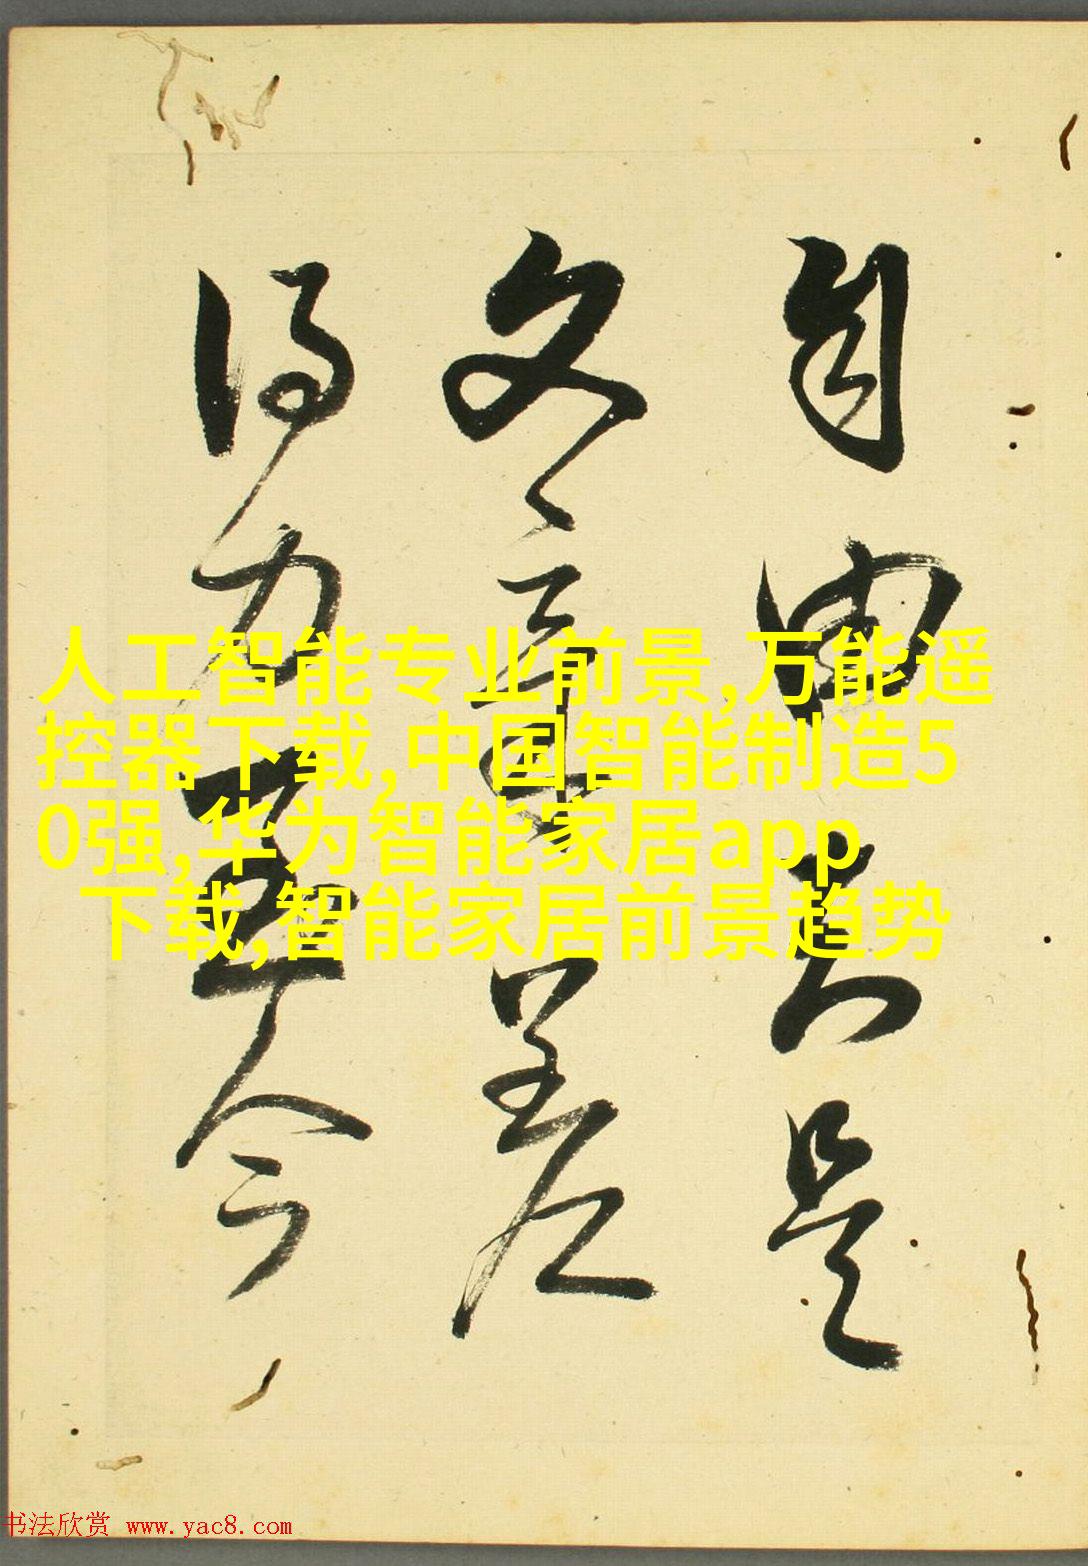 自由是
文章差
得力至今
人工智能专业前景,万能遥
控器下载,中国智能制造5
0强,华为智能家居app
下载,智能家居前景趋势
书法欣赏 www.yac8.com